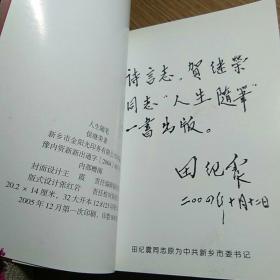 人生随笔
侯继荣著
新乡市金阳光印务有限公司
豫内资新新出通字
内部赠阅
封面设计王震 责任编辑
版式设计张红岩 责任校对
20.2×14厘米，32大开本12
2005年12月第一次印刷，印数
诗言志，贺继荣
同志“人生随筆”
一書出版。
田纪震
二〇〇四年十月十二日
田纪震同志原为中共新乡市委书记